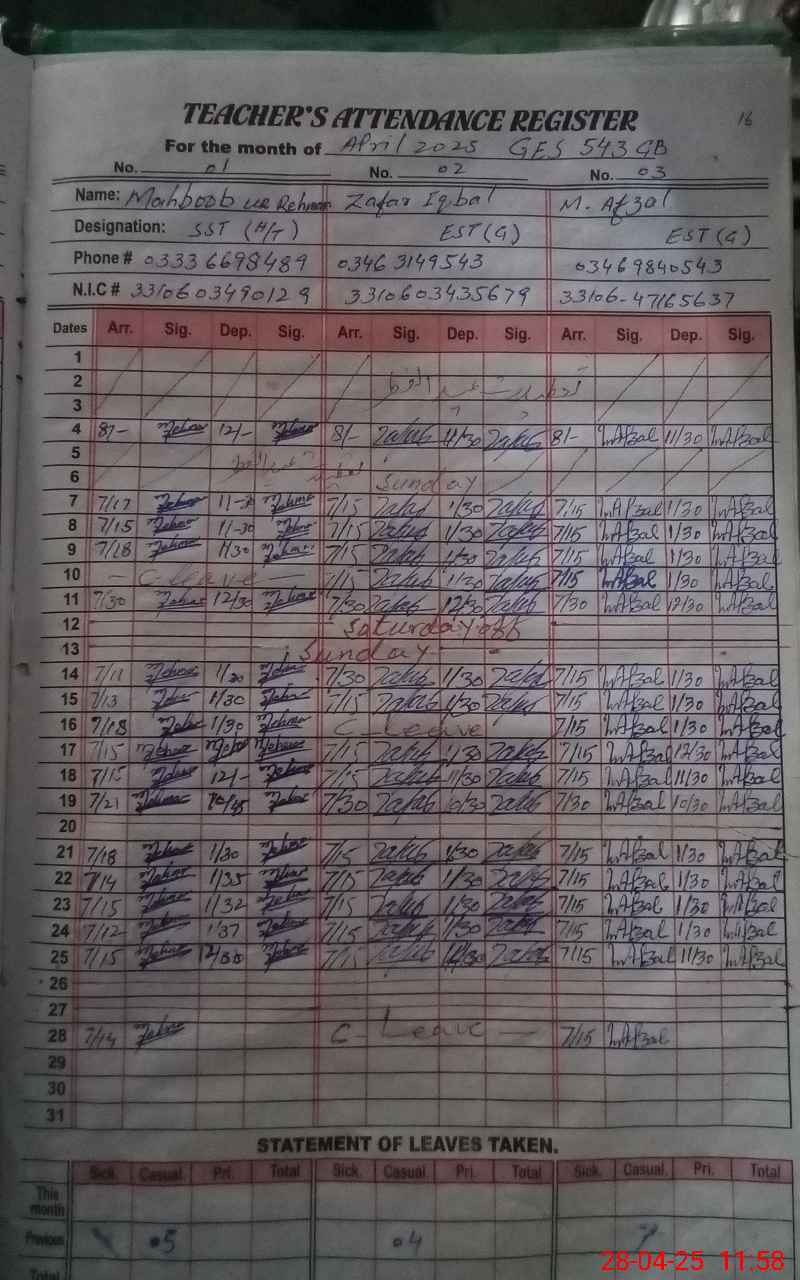 16
TEACHER'S ATTENDANCE REGISTER
For the month of April 2025 GES 543 GB
No. 01 No. 02 No. 03
Name: Mahboob ur Rehman Zafar Iqbal M. Afzal
Designation: SST (H/T) EST (G) EST (G)
Phone # 03336698489 03463149543 03469840543
N.I.C # 3310603490129 3310603435679 33106-47165637
Dates Arr. Sig. Dep. Sig. Arr. Sig. Dep. Sig. Arr. Sig. Dep. Sig.
1
2
3
4 8/- 12/- 8/- Zafar 11/30 Zafar 8/- M.Afzal 11/30 M.Afzal
5
6 Sunday
7 7/15 Zafar 1/30 Zafar 7/15 M.Afzal 1/30 M.Afzal
8 7/15 7/15 Zafar 1/30 Zafar 7/15 M.Afzal 1/30 M.Afzal
9 7/18 1/30 7/15 Zafar 1/30 Zafar 7/15 M.Afzal 1/30 M.Afzal
10 - C-leave - 7/15 Zafar 1/30 Zafar 7/15 M.Afzal 1/30 M.Afzal
11 7/30 12/30 7/30 Zafar 12/30 Zafar 7/30 M.Afzal 12/30 M.Afzal
12 Saturday off
13 Sunday
14 7/11 1/30 7/30 Zafar 1/30 Zafar 7/15 M.Afzal 1/30 M.Afzal
15 7/13 1/30 7/15 Zafar 1/30 Zafar 7/15 M.Afzal 1/30 M.Afzal
16 7/18 1/30 C-Leave 7/15 M.Afzal 1/30 M.Afzal
17 7/15 7/15 Zafar 1/30 Zafar 7/15 M.Afzal 12/30 M.Afzal
18 7/15 12/- 7/15 Zafar 11/30 Zafar 7/15 M.Afzal 11/30 M.Afzal
19 7/21 10/45 7/30 Zafar 10/30 Zafar 7/30 M.Afzal 10/30 M.Afzal
20
21 7/18 1/30 7/15 Zafar 1/30 Zafar 7/15 M.Afzal 1/30 M.Afzal
22 7/14 1/35 7/15 Zafar 1/30 Zafar 7/15 M.Afzal 1/30 M.Afzal
23 7/15 1/32 7/15 Zafar 1/30 Zafar 7/15 M.Afzal 1/30 M.Afzal
24 7/12 1/37 7/15 Zafar 1/30 Zafar 7/15 M.Afzal 1/30 M.Afzal
25 7/15 7/15 Zafar Zafar 7/15 M.Afzal 11/30 M.Afzal
26
27
28 7/14 C-Leave - 7/15 M.Afzal
29
30
31
STATEMENT OF LEAVES TAKEN.
Sick. Casual. Pri. Total Sick. Casual. Pri. Total Sick. Casual. Pri. Total
This month
Previous 05 04
Total
28-04-25 11:58